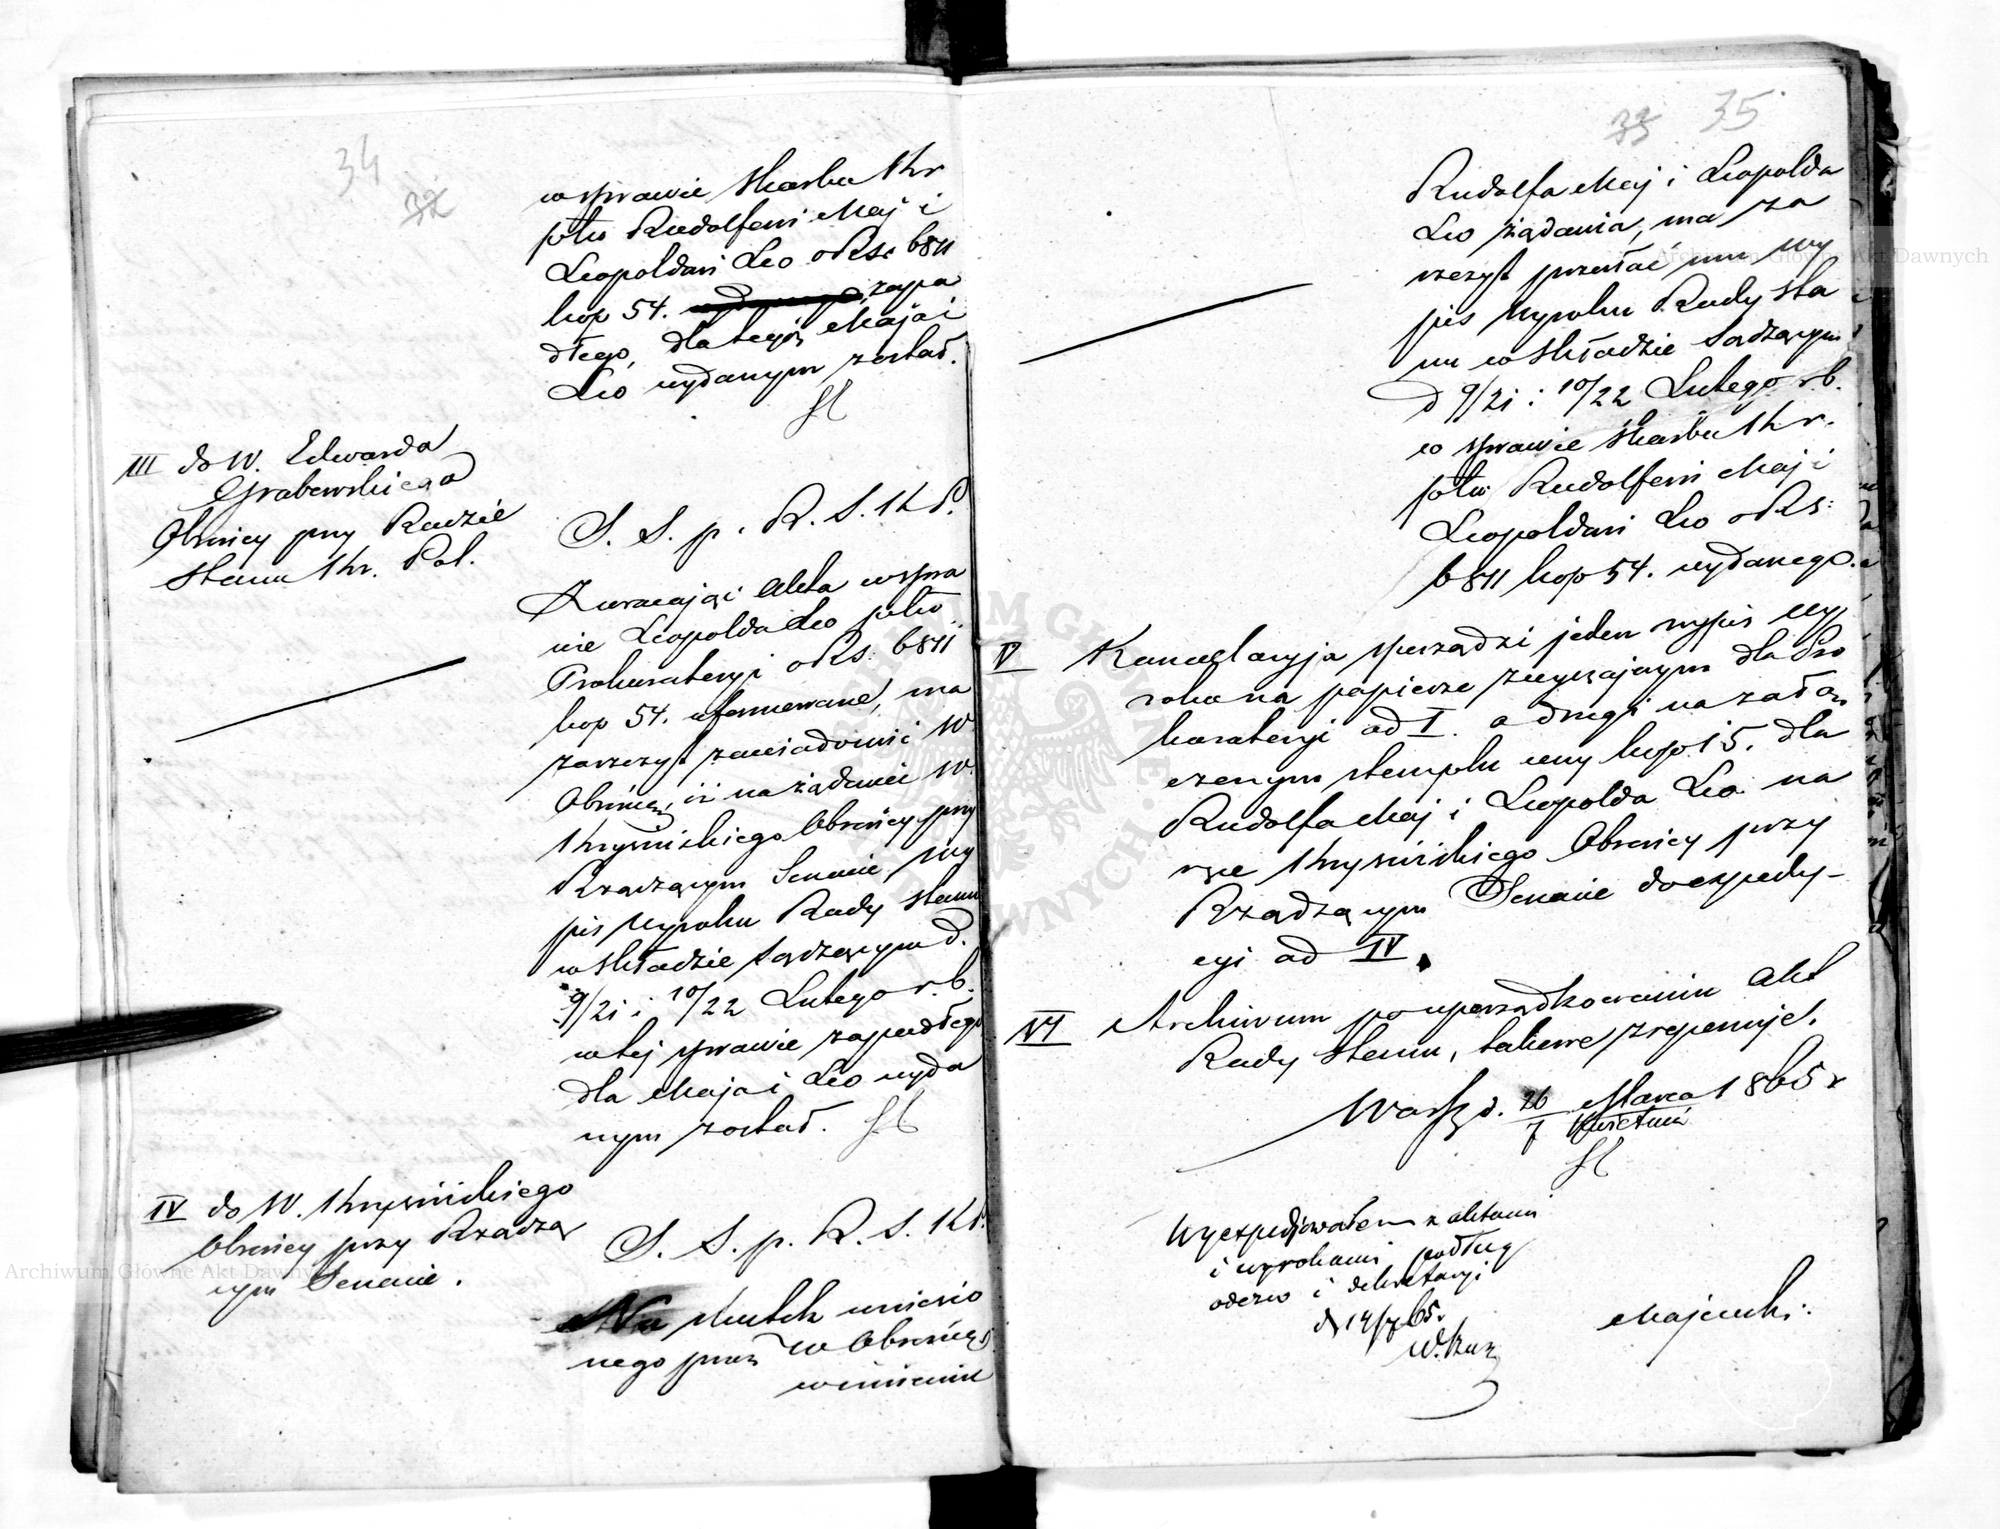 34
32
w sprawie Skarbu Kr
pko Rudolfowi Maj i
Leopoldowi Leo o Rs. 6811
kop 54. zapa
dłego, dla tegoż Maja i
Leo wydanym został.
III do W. Edwarda
Grabowskiego
Obrońcy przy Radzie
Stanu Kr. Pol.
S. S. p. R. S. K P.
Zwracając Akta w spra
wie Leopolda Leo pko
Prokuratoryi o Rs. 6811
kop 54. uformowane, ma
zaszczyt zawiadomić W.
Obrońcę, iż na żądanie W.
Krysińskiego Obrońcy przy
Rządzącym Senacie, wy
pis Wyroku Rady Stanu
w składzie Sądzącym d.
9/21 i 10/22 Lutego r. b.
w tej sprawie zapadłego
dla Maja i Leo wyda
nym został.
IV do W. Krysińskiego
Obrońcy przy Rządzą
cym Senacie.
S. S. p. R. S. K P.
Na skutek wniesio
nego przez W Obrońcę
w imieniu
33 35
Rudolfa Maj i Leopolda
Leo żądania, ma za
szczyt przesłać mu wy
pis Wyroku Rady Sta
nu w składzie Sądzącym
d 9/21 i 10/22 Lutego r. b.
w sprawie Skarbu Kr.
pko Rudolfowi Maj i
Leopoldowi Leo o Rs:
6811 kop 54. wydanego.
V Kancelaryja sporządzi jeden wypis Wy
roku na papierze zwyczajnym dla Pro
kuratoryi ad I. a drugi na załą
czonym stemplu ceny kop 15. dla
Rudolfa Maj i Leopolda Leo na
ręce Krysińskiego Obrońcy przy
Rządzącym Senacie do expedy-
cyi ad IV.
VI Archiwum po uporządkowaniu Akt
Rady Stanu, takowe zreponuje.
Warsz. d. 26/7 Marca/Kwietnia 1865 r
Wyexpedjowałem z aktami
i wyrokami podług
odezw i dekretacyi
d 14/4 65.
Majewski
Archiwum Główne Akt Dawnych
Archiwum Główne Akt Dawnych
ARCHIWUM GŁÓWNE AKT DAWNYCH